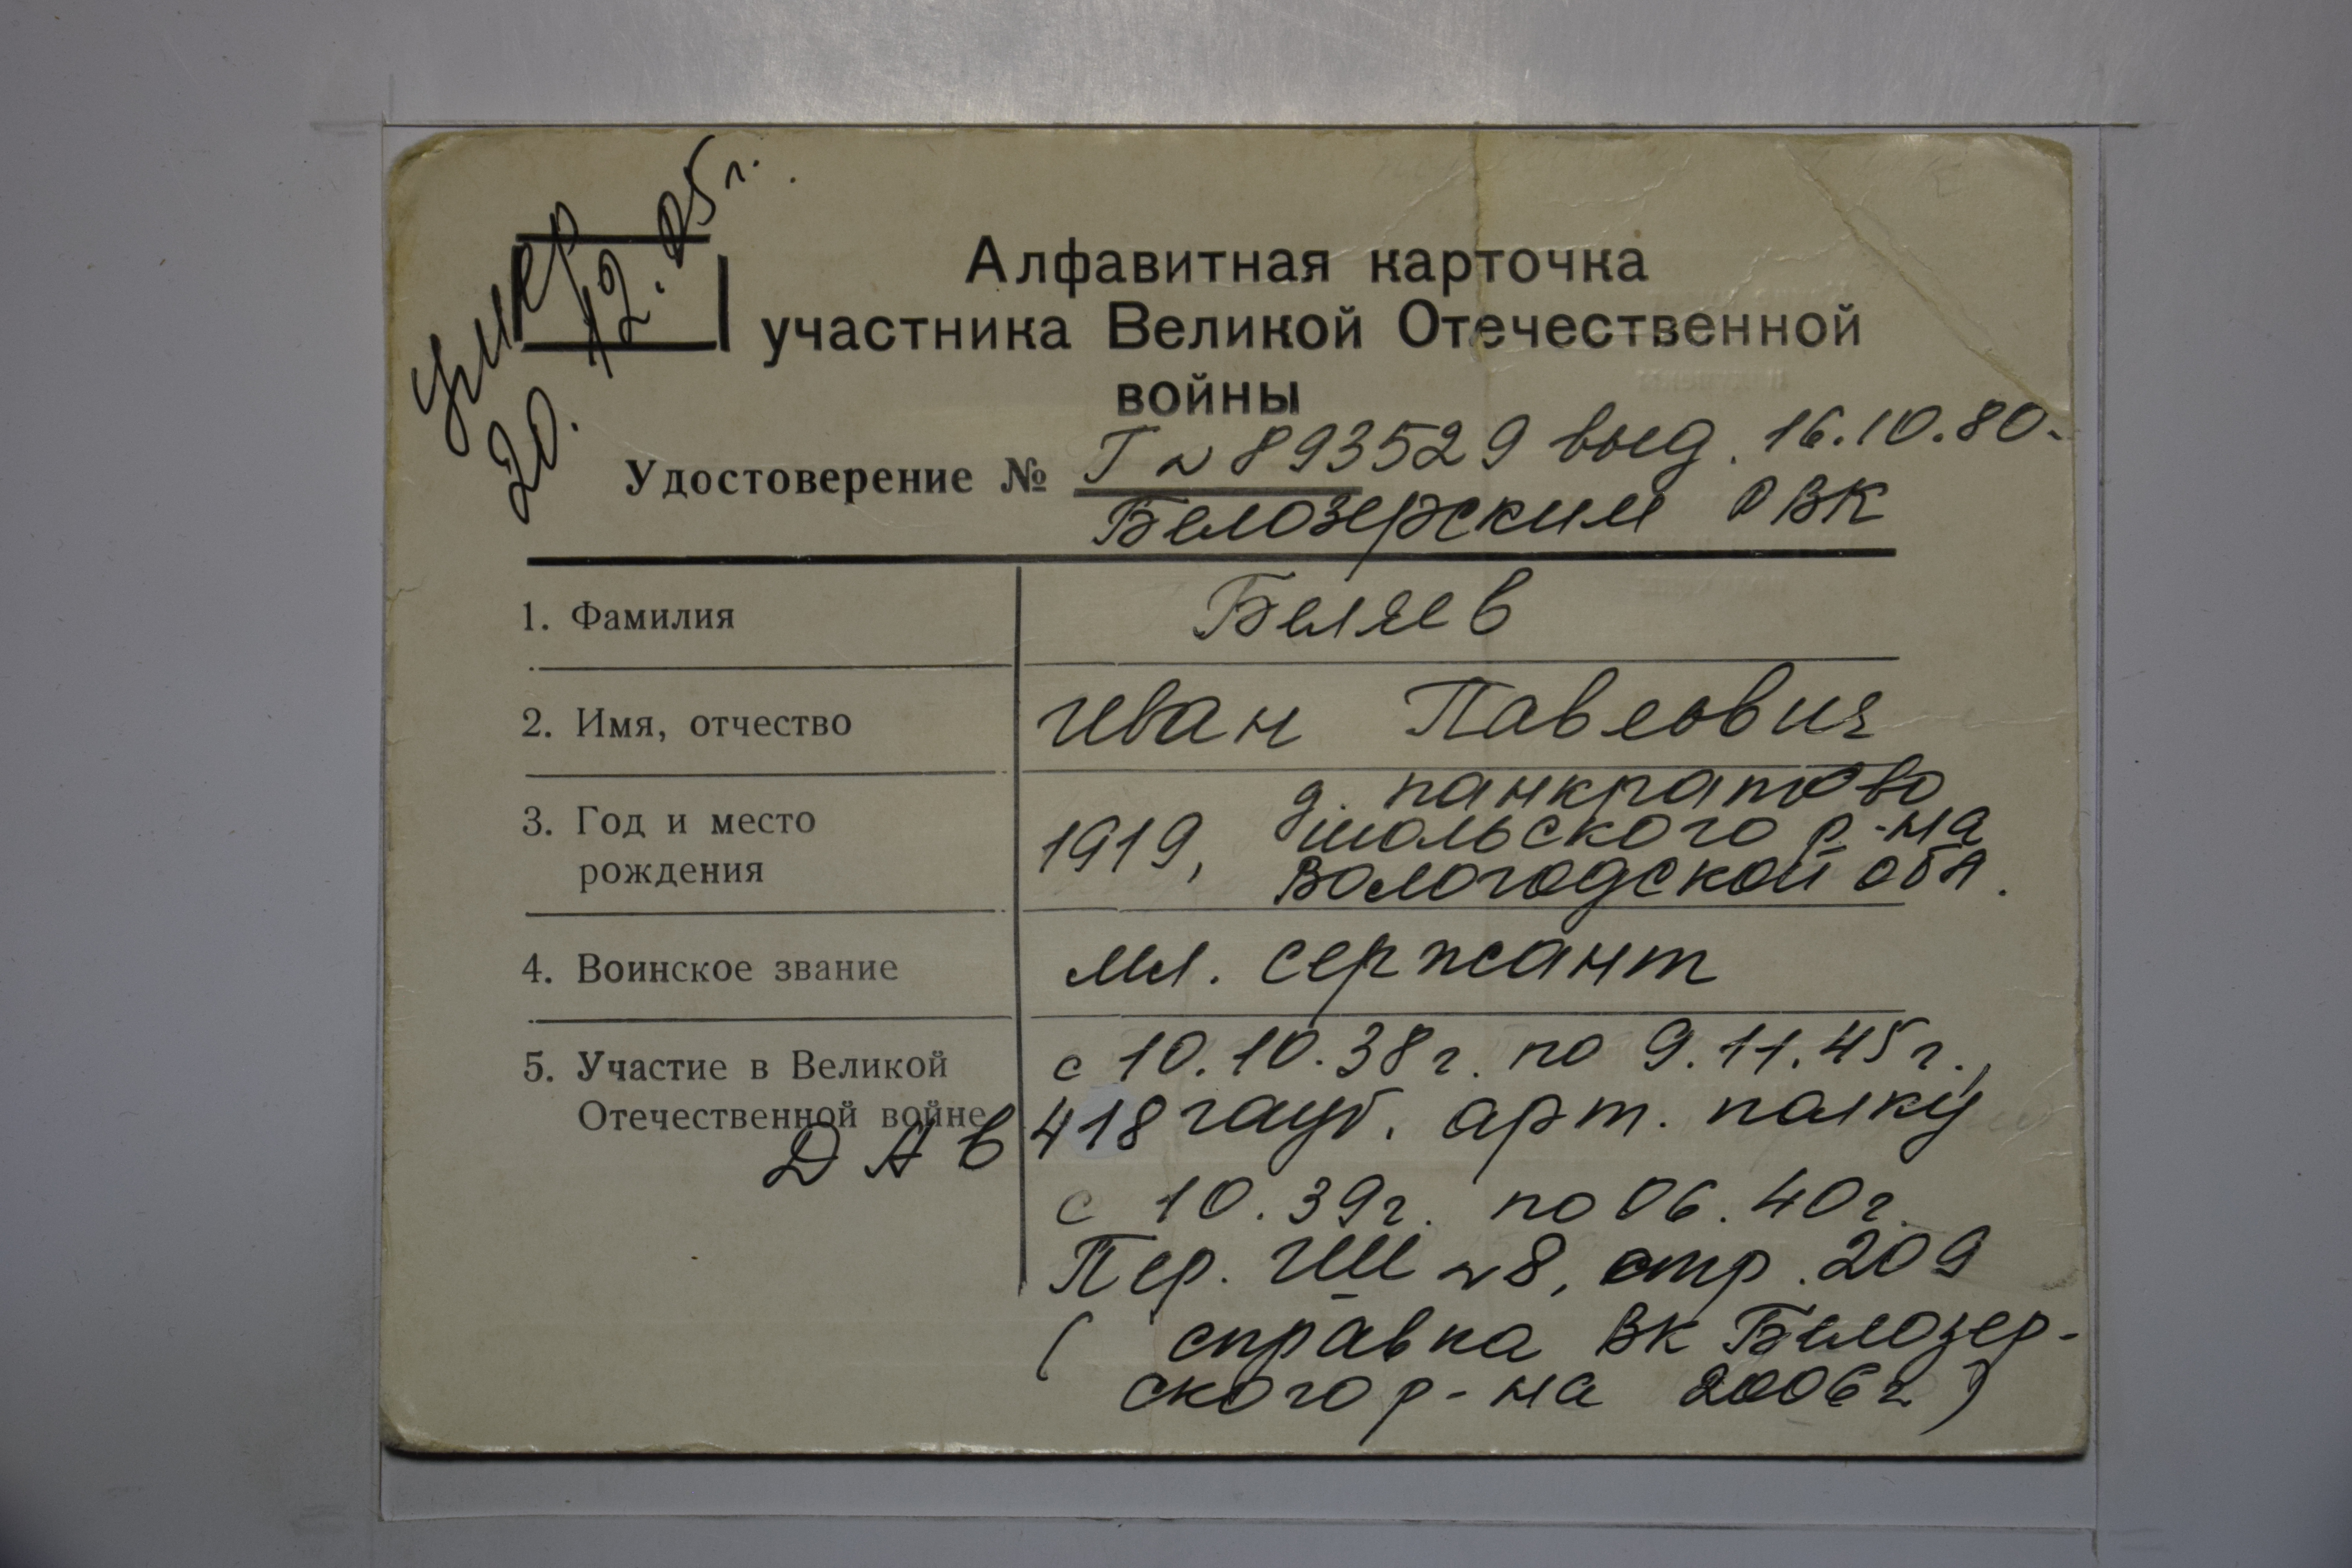 умер
20. 12. 05 г.
Алфавитная карточка
участника Великой Отечественной
войны
Удостоверение № Г № 893529 выд. 16.10.80.
Белозерским РВК
1. Фамилия
Беляев
2. Имя, отчество
Иван Павлович
3. Год и место
рождения
1919, д. Панкратово
Шольского р-на
Вологодской обл.
4. Воинское звание
мл. сержант
5. Участие в Великой
Отечественной войне
ДАВ
с 10.10.38г. по 9.11.45г.,
418 гауб. арт. полку
с 10.39г. по 06.40г.
Пер. ГШ №8, стр. 209
( справка ВК Белозер-
ского р-на 2006г )